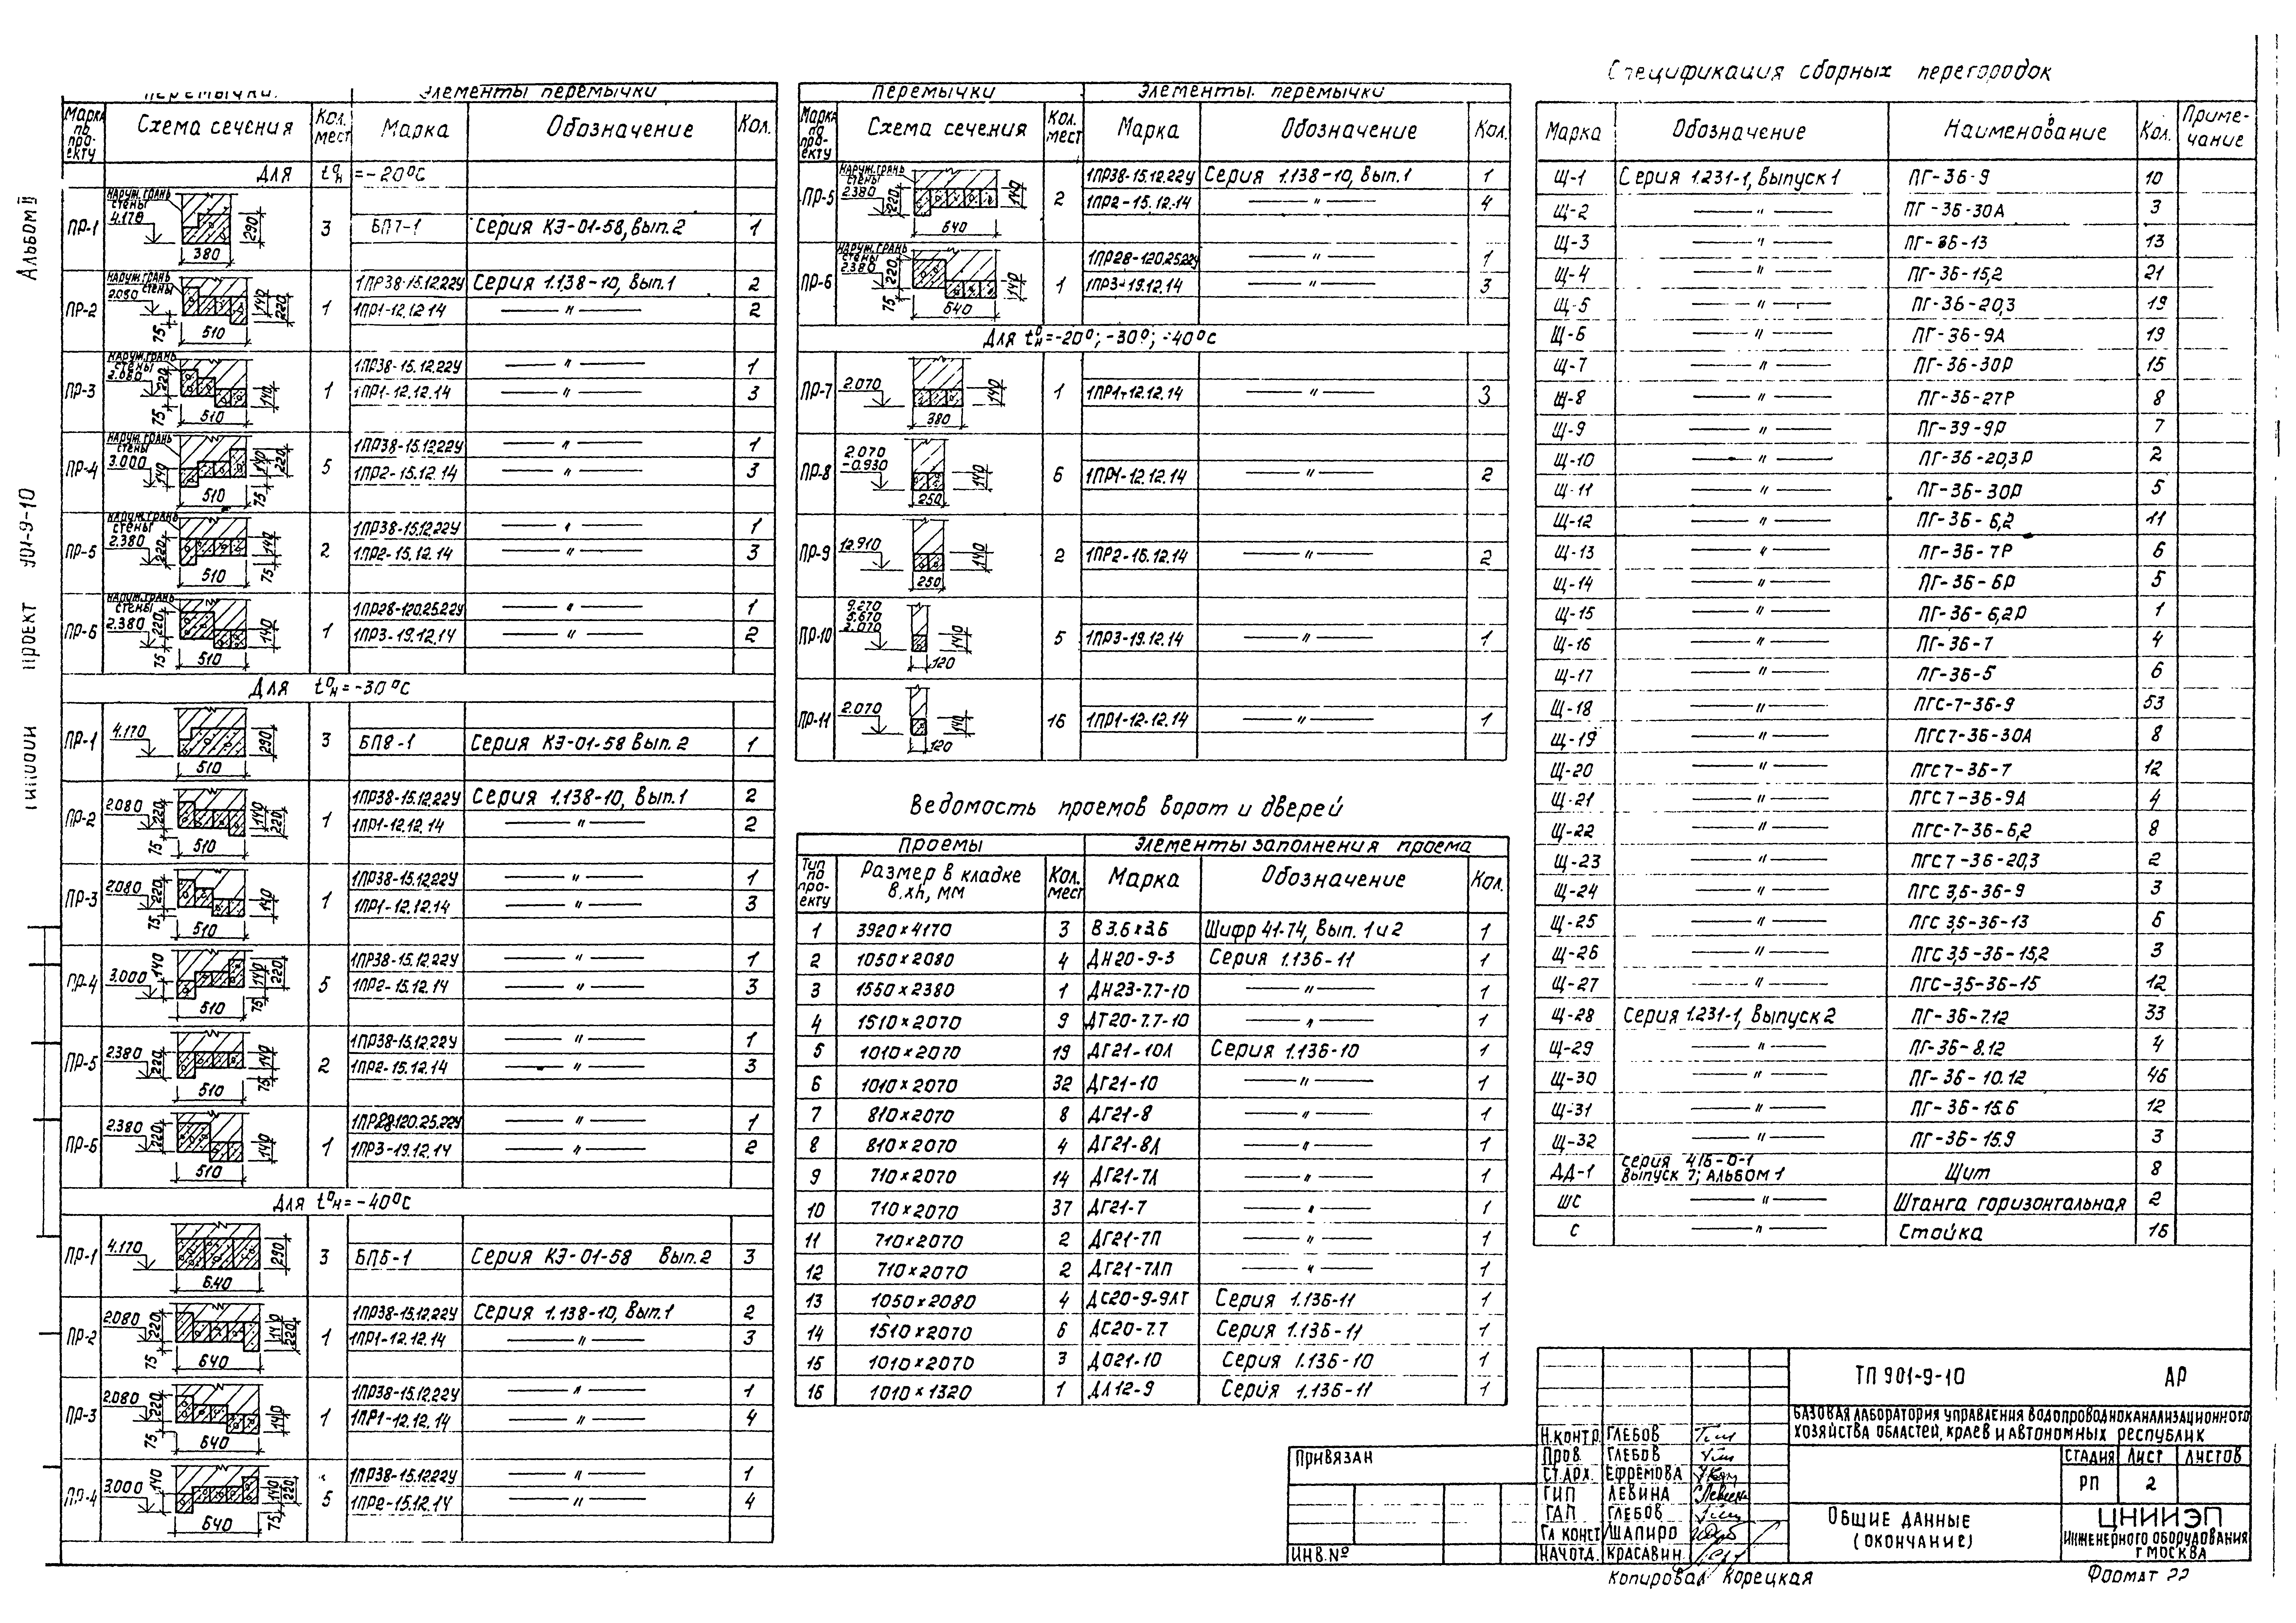 Альбом II
901-9-10
проект
Перемычки.
Элементы перемычки
Марка по проекту
Схема сечения
Кол. мест
Марка
Обозначение
Кол.
Для tн = -20°С
ПР-1 наруж.грань стены 4.170 290 380 3 БП7-1 Серия КЭ-01-58, Вып.2 1
ПР-2 наруж.грань стены 2.080 140 220 75 510 1 1ПР38-15.12.22У Серия 1.138-10, Вып.1 2
1ПР1-12.12.14 — " — 2
ПР-3 наруж.грань стены 2.080 220 140 75 510 1 1ПР38-15.12.22У — " — 1
1ПР1-12.12.14 — " — 3
ПР-4 наруж.грань стены 3.000 140 140 220 75 510 5 1ПР38-15.12.22У — " — 1
1ПР2-15.12.14 — " — 3
ПР-5 наруж.грань стены 2.380 220 140 75 510 2 1ПР38-15.12.22У — " — 1
1ПР2-15.12.14 — " — 3
ПР-6 наруж.грань стены 2.380 220 140 75 510 1 1ПР28-120.25.22У — " — 1
1ПР3-19.12.14 — " — 2
Для tн = -30°С
ПР-1 4.170 290 510 3 БП8-1 Серия КЭ-01-58 Вып.2 1
ПР-2 2.080 220 140 220 75 510 1 1ПР38-15.12.22У Серия 1.138-10, Вып.1 2
1ПР1-12.12.14 — " — 2
ПР-3 2.080 220 140 75 510 1 1ПР38-15.12.22У — " — 1
1ПР1-12.12.14 — " — 3
ПР-4 3.000 140 140 220 75 510 5 1ПР38-15.12.22У — " — 1
1ПР2-15.12.14 — " — 3
ПР-5 2.380 220 140 75 510 2 1ПР38-15.12.22У — " — 1
1ПР2-15.12.14 — " — 3
ПР-6 2.380 220 140 510 1 1ПР28-120.25.22У — " — 1
1ПР3-19.12.14 — " — 2
Для tн = -40°С
ПР-1 4.170 290 640 3 БП6-1 Серия КЭ-01-58 Вып.2 3
ПР-2 2.080 220 140 220 75 640 1 1ПР38-15.12.22У Серия 1.138-10, Вып.1 2
1ПР1-12.12.14 — " — 3
ПР-3 2.080 220 140 75 640 1 1ПР38-15.12.22У — " — 1
1ПР1-12.12.14 — " — 4
ПР-4 3.000 140 140 220 75 640 5 1ПР38-15.12.22У — " — 1
1ПР2-15.12.14 — " — 4
Перемычки
Элементы перемычки
Марка по проекту
Схема сечения
Кол. мест
Марка
Обозначение
Кол.
ПР-5 наруж.грань стены 2.380 220 140 640 2 1ПР38-15.12.22У Серия 1.138-10, Вып.1 1
1ПР2-15.12.14 — " — 4
ПР-6 наруж.грань стены 2.380 220 140 75 640 1 1ПР28-120.25.22У — " — 1
1ПР3-19.12.14 — " — 3
Для tн = -20°; -30°; -40°С
ПР-7 2.070 140 380 1 1ПР1-12.12.14 — " — 3
ПР-8 2.070 -0.930 140 250 6 1ПР1-12.12.14 — " — 2
ПР-9 12.910 140 250 2 1ПР2-15.12.14 — " — 2
ПР-10 140 120 5 1ПР3-19.12.14 — " — 1
ПР-11 2.070 140 120 16 1ПР1-12.12.14 — " — 1
Ведомость проемов ворот и дверей
Проемы
Элементы заполнения проема
Тип по проекту
Размер в кладке в.хh, мм
Кол. мест
Марка
Обозначение
Кол.
1 3920×4170 3 В3.6×3.6 Шифр 41-74, Вып. 1 и 2 1
2 1050×2080 4 ДН20-9-3 Серия 1.136-11 1
3 1550×2380 1 ДН23-7.7-10 — " — 1
4 1510×2070 9 ДТ20-7.7-10 — " — 1
5 1010×2070 19 ДГ21-10Л Серия 1.136-10 1
6 1010×2070 32 ДГ21-10 — " — 1
7 810×2070 8 ДГ21-8 — " — 1
8 810×2070 4 ДГ21-8Л — " — 1
9 710×2070 14 ДГ21-7Л — " — 1
10 710×2070 37 ДГ21-7 — " — 1
11 710×2070 2 ДГ21-7П — " — 1
12 710×2070 2 ДГ21-7ЛП — " — 1
13 1050×2080 4 ДС20-9-9ЛТ Серия 1.136-11 1
14 1510×2070 6 ДС20-7.7 Серия 1.136-11 1
15 1010×2070 3 ДО21-10 Серия 1.136-10 1
16 1010×1320 1 ДЛ12-9 Серия 1.136-11 1
Спецификация сборных перегородок
Марка
Обозначение
Наименование
Кол.
Примечание
Щ-1 Серия 1.231-1, Выпуск 1 ПГ-36-9 10
Щ-2 — " — ПГ-36-30А 3
Щ-3 — " — ПГ-36-13 13
Щ-4 — " — ПГ-36-15,2 21
Щ-5 — " — ПГ-36-20,3 19
Щ-6 — " — ПГ-36-9А 19
Щ-7 — " — ПГ-36-30Р 15
Щ-8 — " — ПГ-36-27Р 8
Щ-9 — " — ПГ-39-9Р 7
Щ-10 — " — ПГ-36-20,3Р 2
Щ-11 — " — ПГ-36-30Р 5
Щ-12 — " — ПГ-36-6,2 11
Щ-13 — " — ПГ-36-7Р 6
Щ-14 — " — ПГ-36-6Р 5
Щ-15 — " — ПГ-36-6,2Р 1
Щ-16 — " — ПГ-36-7 4
Щ-17 — " — ПГ-36-5 6
Щ-18 — " — ПГС-7-36-9 53
Щ-19 — " — ПГС7-36-30А 8
Щ-20 — " — ПГС7-36-7 12
Щ-21 — " — ПГС7-36-9А 4
Щ-22 — " — ПГС-7-36-6,2 8
Щ-23 — " — ПГС7-36-20,3 2
Щ-24 — " — ПГС 3,5-36-9 3
Щ-25 — " — ПГС 3,5-36-13 6
Щ-26 — " — ПГС 3,5-36-15,2 3
Щ-27 — " — ПГС-3,5-36-15 12
Щ-28 Серия 1.231-1, Выпуск 2 ПГ-36-7.12 33
Щ-29 — " — ПГ-36-8.12 4
Щ-30 — " — ПГ-36-10.12 46
Щ-31 — " — ПГ-36-15.6 12
Щ-32 — " — ПГ-36-15.9 3
ДД-1 Серия 416-0-1 Выпуск 7; Альбом 1 Щит 8
ШС — " — Штанга горизонтальная 2
С — " — Стойка 16
Привязан
Инв.№
Н.контр. Глебов
Пров. Глебов
Ст.арх. Ефремова
ГИП Левина
ГАП Глебов
Гл.конст. Шапиро
Нач.отд. Красавин
ТП 901-9-10 АР
Базовая лаборатория управления водопроводноканализационного
хозяйства областей, краев и автономных республик
Стадия Лист Листов
РП 2
Общие данные
(окончание)
ЦНИИЭП
инженерного оборудования
г Москва
Копировал Корецкая
Формат 22